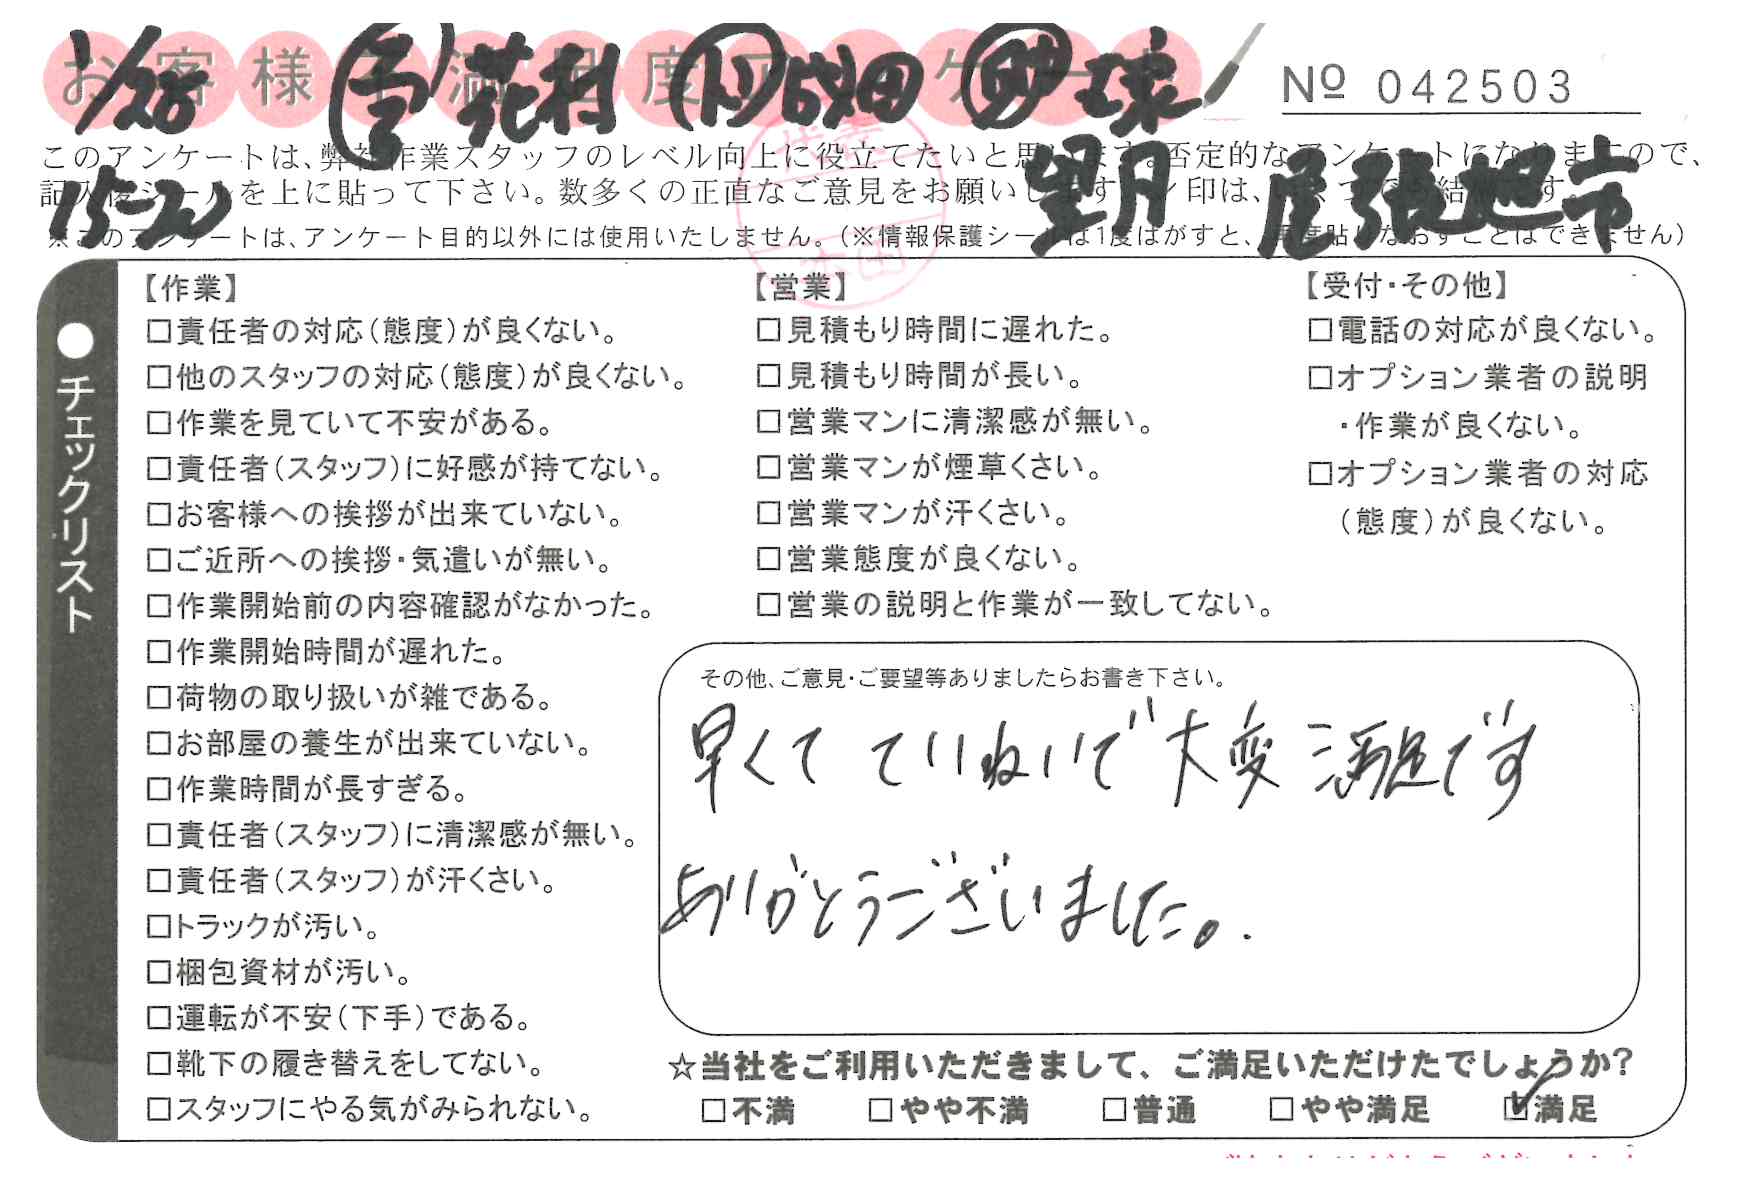 お客様不満足度アンケート
1/28 営 花村 作 成田 助 球
No 042503
このアンケートは、弊社作業スタッフのレベル向上に役立てたいと思います。否定的なアンケートになりますので、
記入後シールを上に貼って下さい。数多くの正直なご意見をお願いします
15-2
望月 尾張旭市
※このアンケートは、アンケート目的以外には使用いたしません。(※情報保護シールは1度はがすと、再度貼りなおすことはできません)
代表
本田
●チェックリスト
【作業】
□責任者の対応(態度)が良くない。
□他のスタッフの対応(態度)が良くない。
□作業を見ていて不安がある。
□責任者(スタッフ)に好感が持てない。
□お客様への挨拶が出来ていない。
□ご近所への挨拶・気遣いが無い。
□作業開始前の内容確認がなかった。
□作業開始時間が遅れた。
□荷物の取り扱いが雑である。
□お部屋の養生が出来ていない。
□作業時間が長すぎる。
□責任者(スタッフ)に清潔感が無い。
□責任者(スタッフ)が汗くさい。
□トラックが汚い。
□梱包資材が汚い。
□運転が不安(下手)である。
□靴下の履き替えをしてない。
□スタッフにやる気がみられない。
【営業】
□見積もり時間に遅れた。
□見積もり時間が長い。
□営業マンに清潔感が無い。
□営業マンが煙草くさい。
□営業マンが汗くさい。
□営業態度が良くない。
□営業の説明と作業が一致してない。
【受付・その他】
□電話の対応が良くない。
□オプション業者の説明
・作業が良くない。
□オプション業者の対応
(態度)が良くない。
その他、ご意見・ご要望等ありましたらお書き下さい。
早くて ていねいで 大変 満足です
ありがとうございました。
☆当社をご利用いただきまして、ご満足いただけたでしょうか?
□不満 □やや不満 □普通 □やや満足 ☑満足